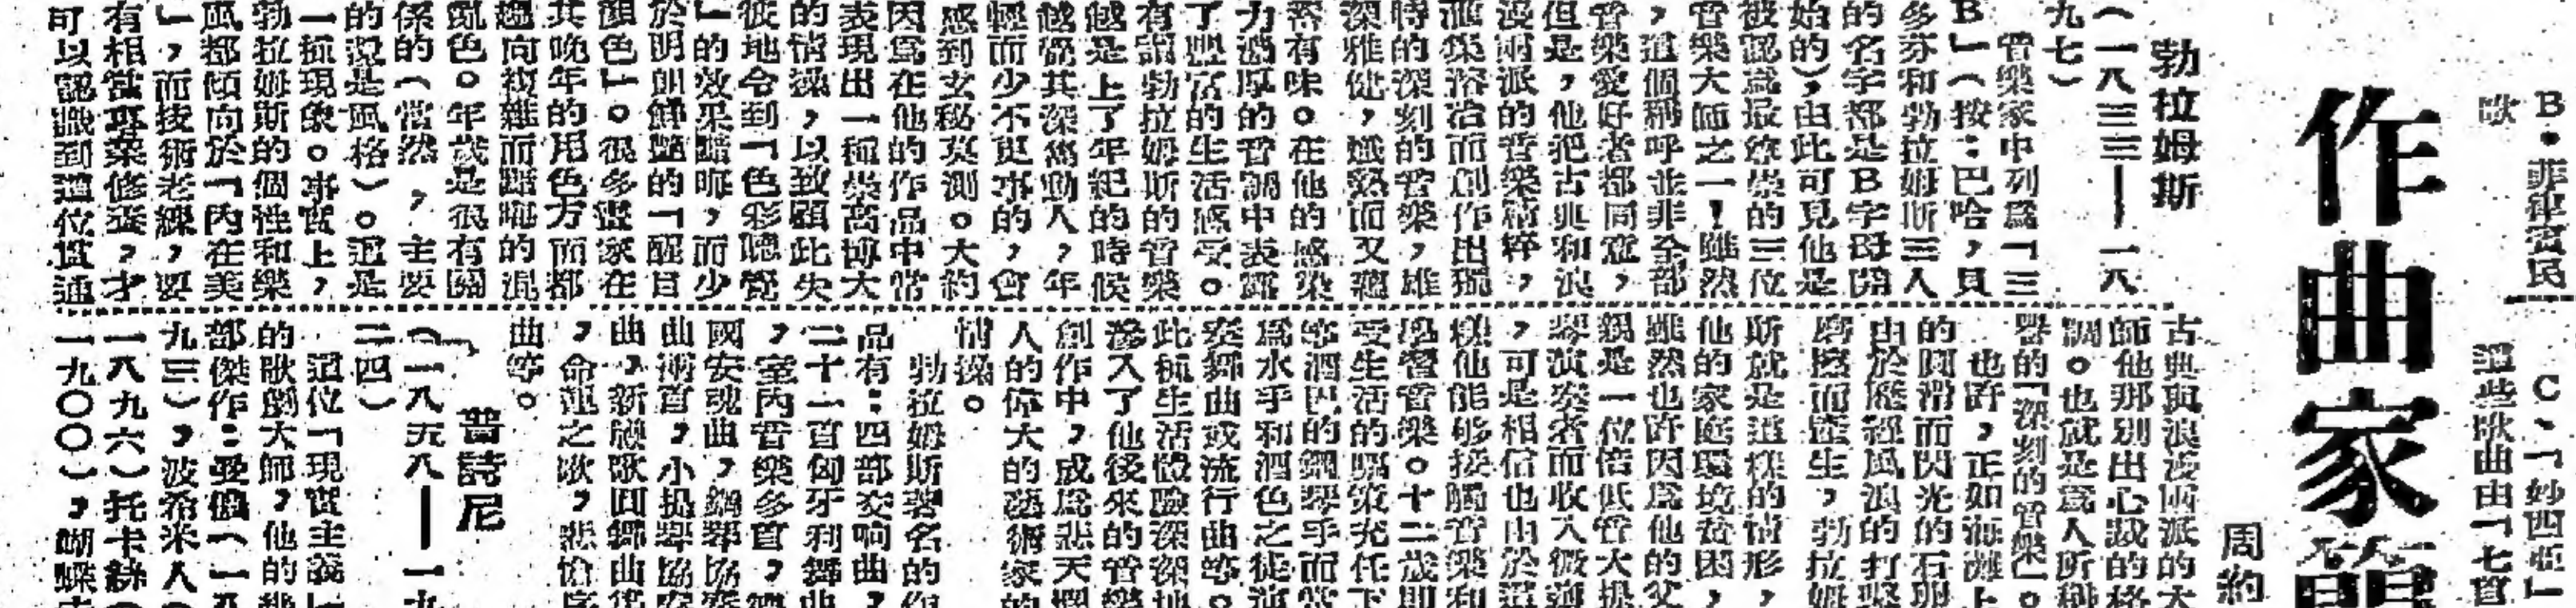 B·菲律賓民
歌
C、「妙西亞」
這些歌曲由「七首
作曲家簡
周約
勃拉姆斯
(一八三三——一八
九七)
音樂家中列爲「三
B」(按:巴哈,貝
多芬和勃拉姆斯三人
的名字都是B字母開
始的),由此可見他是
被認爲最崇的三位
音樂大師之一!雖然
,這個稱呼並非全部
音樂愛好者都同意,
但是,他把古典和浪
漫兩派的音樂精粹,
滙集溶治而創作出獨
特的深刻的音樂,雄
深雅健,嫻熟而又蘊
蓄有味。在他的感染
力濃厚的音調中表露
了豐富的生活感受。
有謂勃拉姆斯的音樂
越是上了年紀的時候
越覺其深雋動人,年
輕而少不更事的,會
感到玄秘莫測。大約
因爲在他的作品中常
表現出一種崇高博大
的情操,以致顧此失
彼地令到「色彩聽覺
」的效果黯晦,而少
於明朗鮮艷的「醒目
顏色」。很多畫家在
其晚年的用色方面都
趨向複雜而黯晦的混
亂色。年歲是很有關
係的(當然,主要
的還是風格)。這是
一種現象。事實上,
勃拉姆斯的個性和樂
風都傾向於「內在美
」,而技術老練,要
有相當專業修養,才
可以認識到這位貫通
古典與浪漫兩派的大
師他那別出心裁的格
調。也就是爲人所稱
譽的「深刻的音樂」。
也許,正如海灘上
的圓滑而閃光的石卵
由於歷經風浪的打擊
磨擦而產生,勃拉姆
斯就是這樣的情形,
他的家庭環境苦困,
雖然也許因爲他的父
親是一位倍低音大提
琴演奏者而收入微薄
,可是相信也由於這
樣他能够接觸音樂和
學習音樂。十二歲即
受生活的驅策充任下
等酒巴的鋼琴手而常
爲水手和酒色之徒演
奏舞曲或流行曲等。
此種生活體驗深深地
滲入了他後來的音樂
創作中,成爲悲天憫
人的偉大的藝術家的
情操。
勃拉姆斯著名的作
品有:四部交响曲,
二十一首匈牙利舞曲
,室內音樂多首,德
國安魂曲,鋼琴協奏
曲兩首,小提琴協奏
曲,新戀歌圓舞曲集
,命運之歌,悲愴序
曲等。
普詩尼
(一八五八——一九
二四)
這位「現實主義」
的歌劇大師,他的幾
部傑作:曼儂(一八
九三),波希米人(
一八九六)托卡絲(
一九〇〇),蝴蝶夫